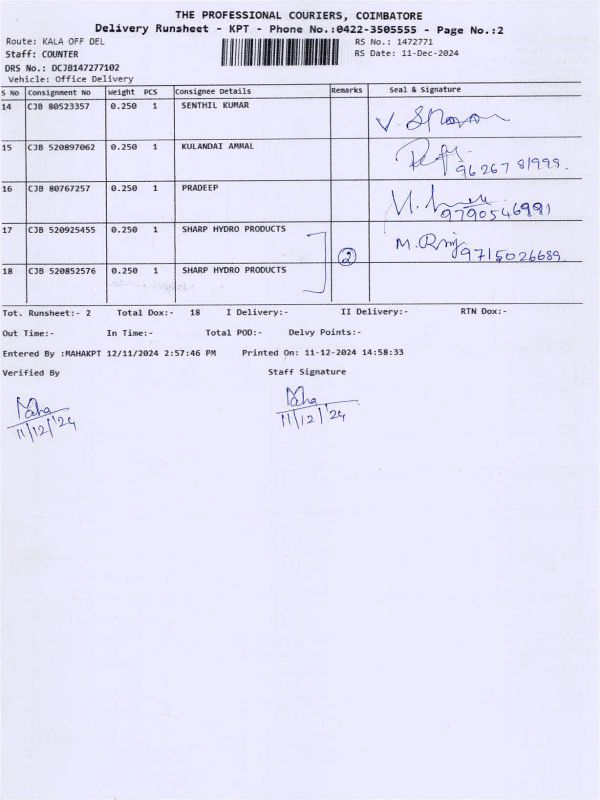 THE PROFESSIONAL COURIERS, COIMBATORE
Delivery Runsheet - KPT - Phone No.:0422-3505555 - Page No.:2
Route: KALA OFF DEL RS No.: 1472771
Staff: COUNTER RS Date: 11-Dec-2024
DRS No.: DCJB147277102
Vehicle: Office Delivery
S No Consignment No Weight PCS Consignee Details Remarks Seal & Signature
14 CJB 80523357 0.250 1 SENTHIL KUMAR
15 CJB 520897062 0.250 1 KULANDAI AMMAL 96267 81999.
16 CJB 80767257 0.250 1 PRADEEP 9790546991
17 CJB 520925455 0.250 1 SHARP HYDRO PRODUCTS 2 9715026689.
18 CJB 520852576 0.250 1 SHARP HYDRO PRODUCTS
Tot. Runsheet:- 2 Total Dox:- 18 I Delivery:- II Delivery:- RTN Dox:-
Out Time:- In Time:- Total POD:- Delvy Points:-
Entered By :MAHAKPT 12/11/2024 2:57:46 PM Printed On: 11-12-2024 14:58:33
Verified By Staff Signature
Maha Maha
11/12/'24 11/12/'24